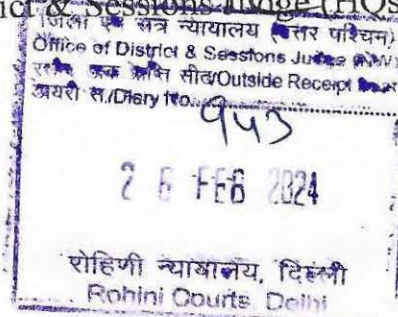 ict & Sessions Judge (HQs
जिला एवं सत्र न्यायालय (उत्तर पश्चिम)
Office of District & Sessions Judge (N/W)
सील/Outside Receipt
डायरी स./Diary No. 943
2 6 FEB 2024
रोहिणी न्यायालय, दिल्ली
Rohini Courts, Delhi